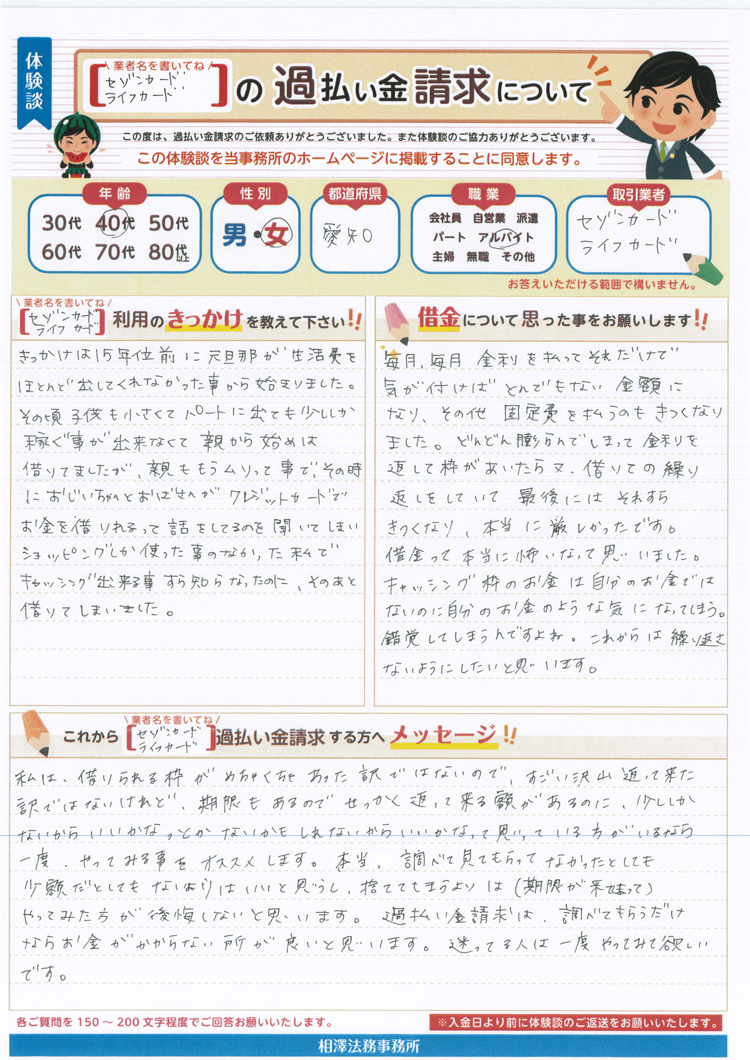 体験談
業者名を書いてね
セゾンカード
ライフカード
の過払い金請求について
この度は、過払い金請求のご依頼ありがとうございました。また体験談のご協力ありがとうございます。
この体験談を当事務所のホームページに掲載することに同意します。
年齢
30代 40代 50代
60代 70代 80代以上
性別
男・女
都道府県
愛知
職業
会社員 自営業 派遣
パート アルバイト
主婦 無職 その他
取引業者
セゾンカード
ライフカード
お答えいただける範囲で構いません。
業者名を書いてね
セゾンカード
ライフカード
利用のきっかけを教えて下さい!!
きっかけは15年位前に元旦那が生活費を
ほとんど出してくれなかった事から始まりました。
その頃子供も小さくてパートに出ても少ししか
稼ぐ事が出来なくて親から始めは
借りてましたが、親ももうムリって事で、その時
におじいちゃんとおばさんがクレジットカードで
お金を借りれるって話をしてるのを聞いてしまい
ショッピングしか使った事のなかった私で
キャッシング出来る事すら知らなったのに、そのあと
借りてしまいました。
借金について思った事をお願いします!!
毎月、毎月金利を払ってそれだけで
気が付けばとんでもない金額に
なり、その他固定費を払うのもきつくなり
ました。どんどん膨らんでしまって金利を
返して枠があいたら又、借りての繰り
返しをしていて最後にはそれすら
きつくなり、本当に厳しかったです。
借金って本当に怖いなって思いました。
キャッシング枠のお金は自分のお金では
ないのに自分のお金のような気になってしまう。
錯覚してしまうんですよね。これからは繰り返さ
ないようにしたいと思います。
これから
業者名を書いてね
セゾンカード
ライフカード
過払い金請求する方へメッセージ!!
私は、借りられる枠がめちゃくちゃあった訳ではないので、すごい沢山返って来た
訳ではないけれど、期限もあるのでせっかく返って来る額があるのに、少ししか
ないからいいかなっとかないかもしれないからいいかなって思っている方がいるなら
一度、やってみる事をオススメします。本当、調べて見てもらってなかったとしても
少額だとしてもないよりはいいと思うし、捨ててしまうよりは(期限が来ちゃって)
やってみた方が後悔しないと思います。過払い金請求は、調べてもらうだけ
ならお金がかからない所が良いと思います。迷ってる人は一度やってみて欲しい
です。
各ご質問を150〜200文字程度でご回答お願いいたします。
※入金日より前に体験談のご返送をお願いいたします。
相澤法務事務所